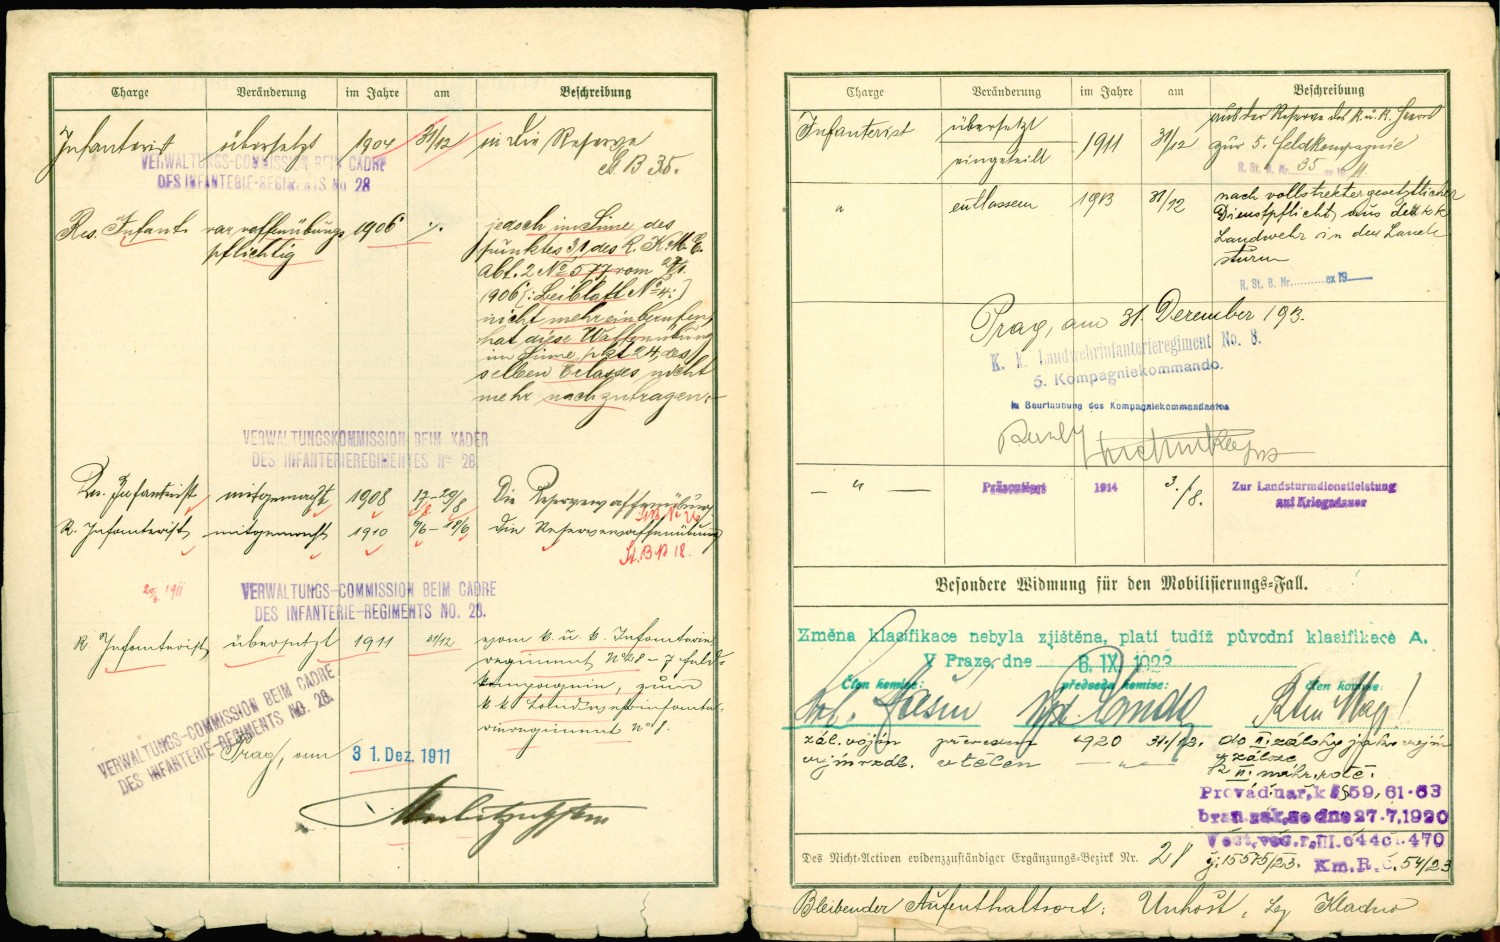 Charge Veränderung im Jahre am Beschreibung
Infanterist übersetzt 1904 31/12 in die Reserve
St. B 35.
VERWALTUNGS-COMMISSION BEIM CADRE
DES INFANTERIE-REGIMENTS No 28
Res. Infant. waffenübungs 1906 jedoch im Sinne des
pflichtig Punktes 3,1 des R. K. M. E.
Abt. 2 No 577 vom
1906 [: Beiblatt No 4:]
nicht mehr einberufen,
hat diese Waffenübung
im Sinne pkt 24, des
selben Erlasses nicht
mehr nachzutragen.
VERWALTUNGSKOMMISSION BEIM KADER
DES INFANTERIEREGIMENTES No 28
Res. Infanterist mitgemacht 1908 17/8-29/8 die Reservewaffenübung
R. Infanterist mitgemacht 1910 6/6-18/6 die Reservewaffenübung
St. B. No 18.
1911
VERWALTUNGS-COMMISSION BEIM CADRE
DES INFANTERIE-REGIMENTS NO. 28.
R. Infanterist übersetzt 1911 31/12 vom k. u. k. Infanterie
regiment No 28 - 7 Feld-
kompagnie, zum
k k Landwehrinfante-
rieregiment No 8.
VERWALTUNGS-COMMISSION BEIM CADRE
DES INFANTERIE-REGIMENTS NO. 28.
Prag, am 31. Dez. 1911
Charge Veränderung im Jahre am Beschreibung
Infanterist übersetzt 1911 31/12 aus der Reserve des k. u. k. Heeres
eingeteilt zur 5. Feldkompagnie
R. St. B. Nr. 35 ex 19
" entlassen 1913 31/12 nach vollstreckter gesetzlicher
Dienstpflicht aus der k k
Landwehr in den Land
sturm
R. St. B. Nr. ex 19
Prag, am 31. Dezember 193.
K. k. Landwehrinfanterieregiment No. 8.
5. Kompagniekommando.
In Beurlaubung des Kompagniekommandanten
— " — Präsentiert 1914 3./8. Zur Landsturmdienstleistung
auf Kriegsdauer
Besondere Widmung für den Mobilisierungs-Fall.
Změna klasifikace nebyla zjištěna, platí tudíž původní klasifikace A.
V Praze, dne 6. IX. 1923
Člen komise: předseda komise: člen komise:
zál. voján přeřazen 1920 31./12. do II. zálohy
vtělen — " —
k II. náhr. rotě.
Provád. nař. k §§ 59, 61-63
bran. zák. ze dne 27.7.1920
Věst. věc. r. III. č 44 čl. 470
č. j. 15575/23. Km. R. č. 54/23
Des Nicht-Activen evidenzzuständiger Ergänzungs-Bezirk Nr. 28
Bleibender Aufenthaltsort: Unhošt, bez. Kladno